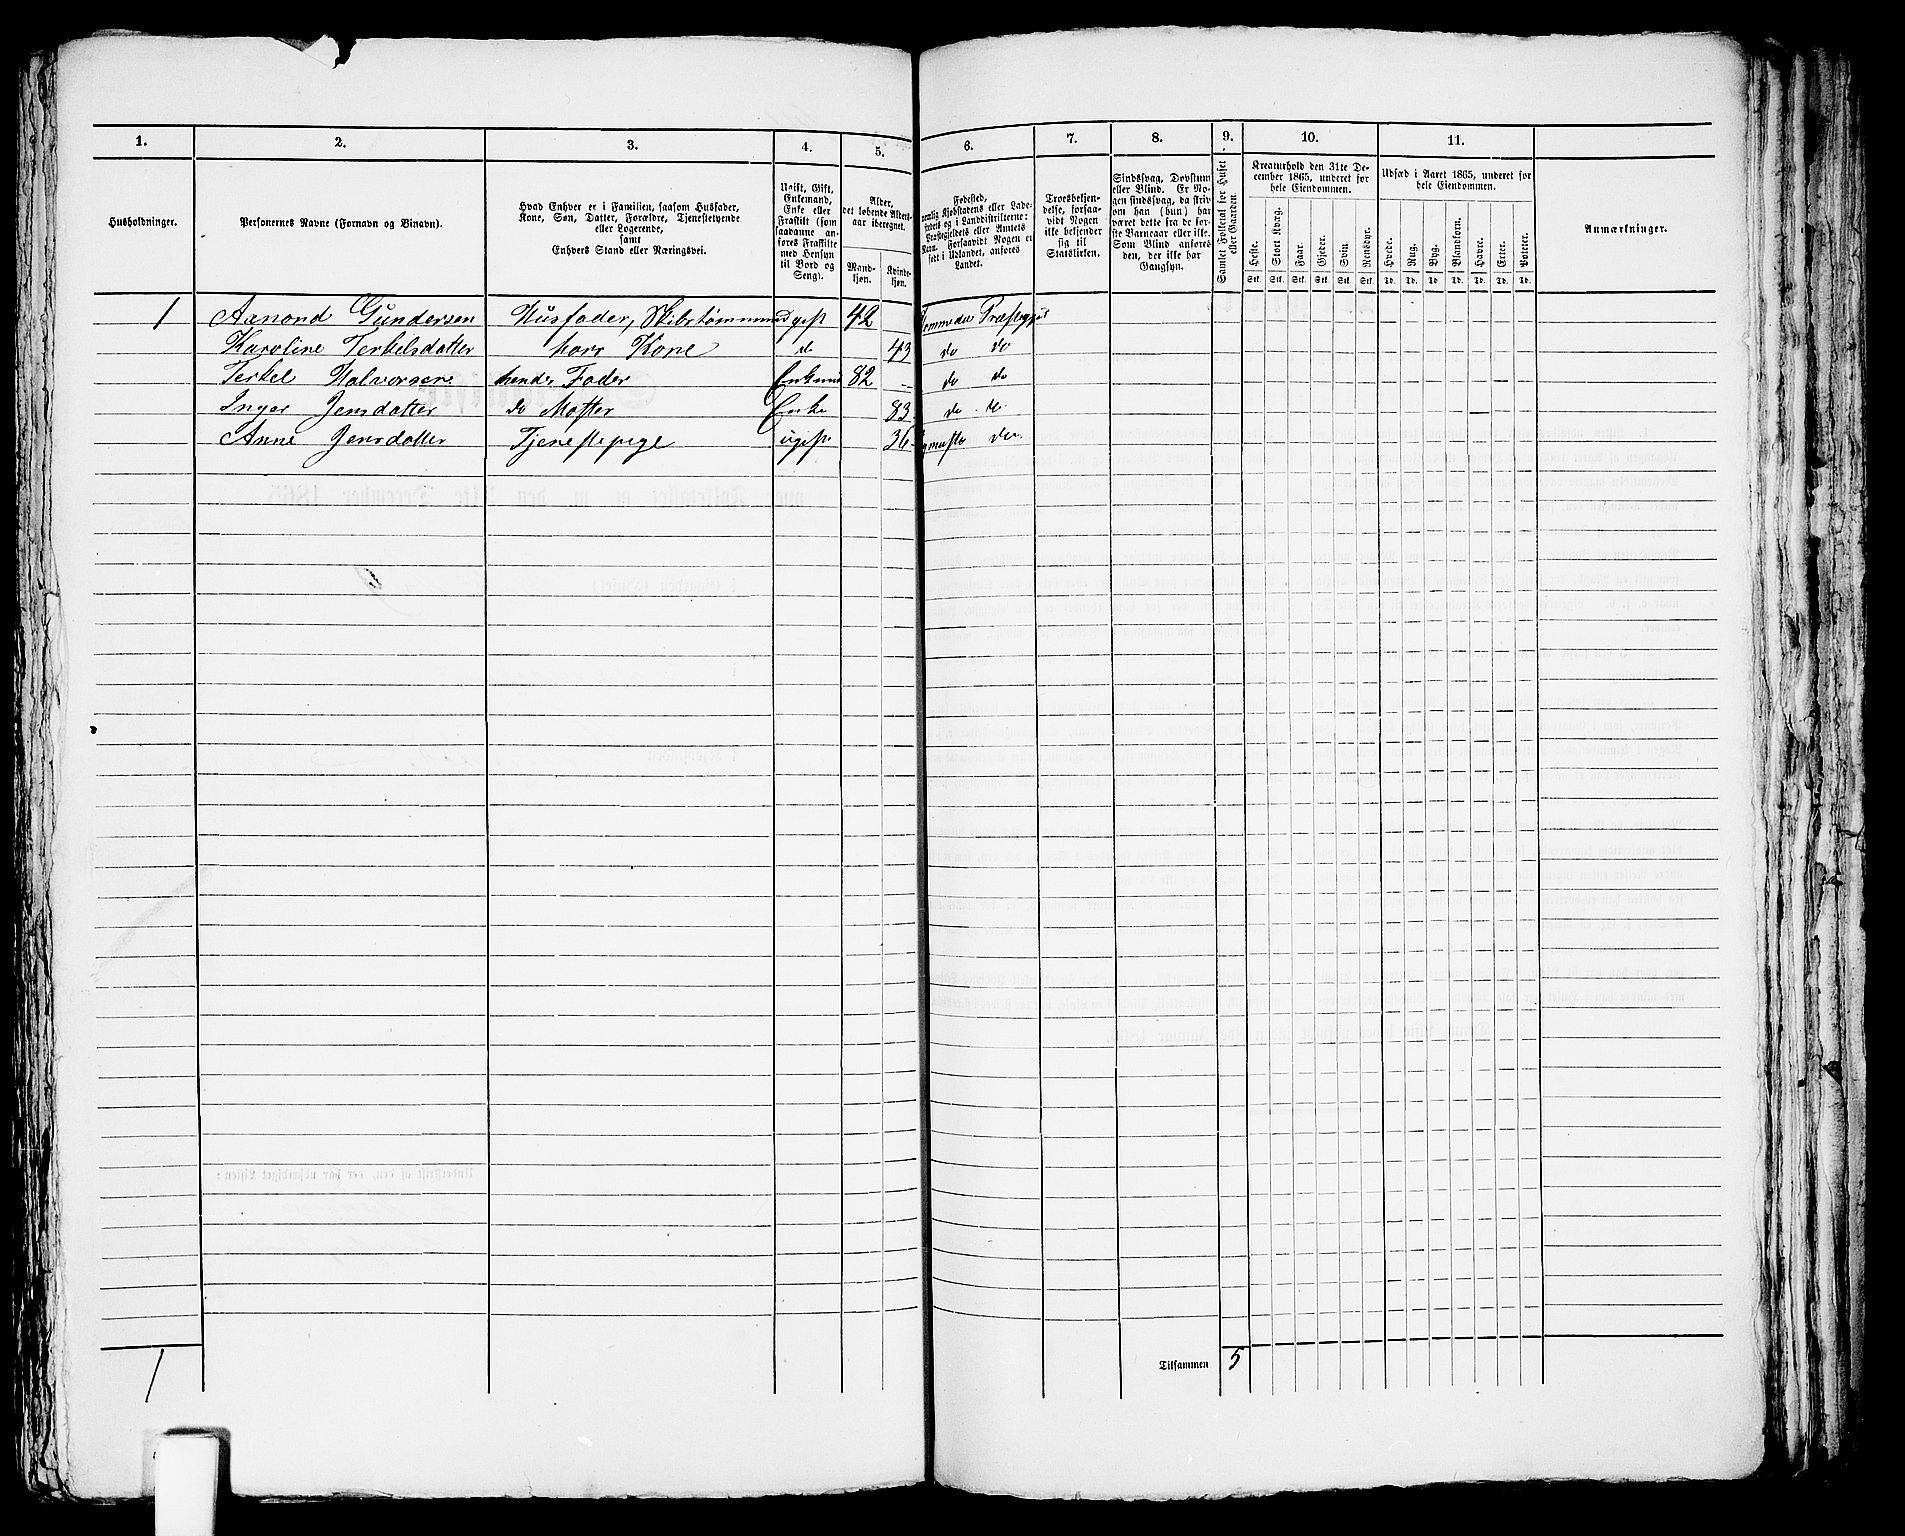 1. 2. 3. 4. 5. 6. 7. 8. 9. 10. 11.
Husholdninger.
Personernes Navne (Fornavn og Binavn).
Hvad Enhver er i Familien, saasom Husfader,
Kone, Søn, Datter, Forældre, Tjenestetyende
eller Logerende,
samt
Enhvers Stand eller Næringsvei.
Ugift, Gift,
Enkemand,
Enke eller
Fraskilt (som
saadanne an-
føres Fraskilte
med Hensyn
til Bord og
Seng).
Alder,
det løbende Alders-
aar iberegnet.
Mand-
kjøn.
Kvinde-
kjøn.
Fødested,
nemlig Kjøbstadens eller Lade-
stedets og i Landdistrikterne:
Præstegjeldets eller Amtets
Navn. Forsaavidt Nogen er
født i Udlandet, anføres
Landet.
Troesbekjen-
delse, forsaa-
vidt Nogen
ikke bekjender
sig til
Statskirken.
Sindssvag, Døvstum
eller Blind. Er No-
gen sindssvag, da skriv
om han (hun) har
været dette fra de før-
ste Barneaar eller ikke.
Som Blind anføres
den, der ikke har
Gangsyn.
Samlet Folketal for Huset
eller Gaarden.
Kreaturhold den 31te De-
cember 1865, underet for
hele Eiendommen.
Heste. Stort Kvæg. Faar. Gjeder. Svin. Rensdyr.
Stk. Stk. Stk. Stk. Stk. Stk.
Udsæd i Aaret 1865, underet for
hele Eiendommen.
Hvede. Rug. Byg. Blandkorn. Havre. Erter. Poteter.
Td. Td. Td. Td. Td. Td. Td.
Anmærkninger.
1 Aanond Gundersen Husfader, Skibstømmermd gift 42 Præstegjeld
Karoline Terkelsdatter hans Kone do 43 do do
Terkel Halvorsen hendes Fader Enkmd 82 do do
Inger Jensdatter do Moster Enke 83 do do
Anne Jensdatter Tjenestepige ugift 36 do
Tilsammen 5
1